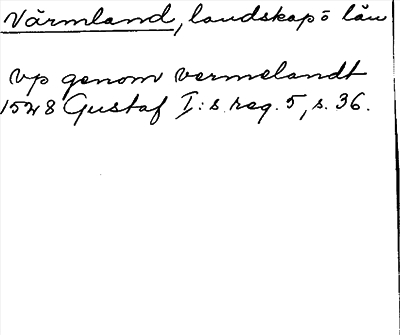 Värmland, landskap o län
vp genom vermelandt
1528 Gustaf I:s reg. 5, s. 36.